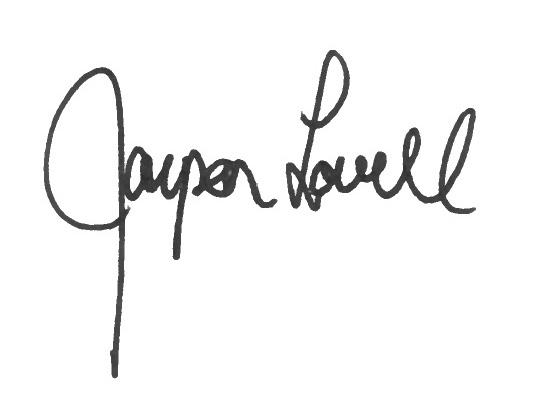 Jayson Lovell